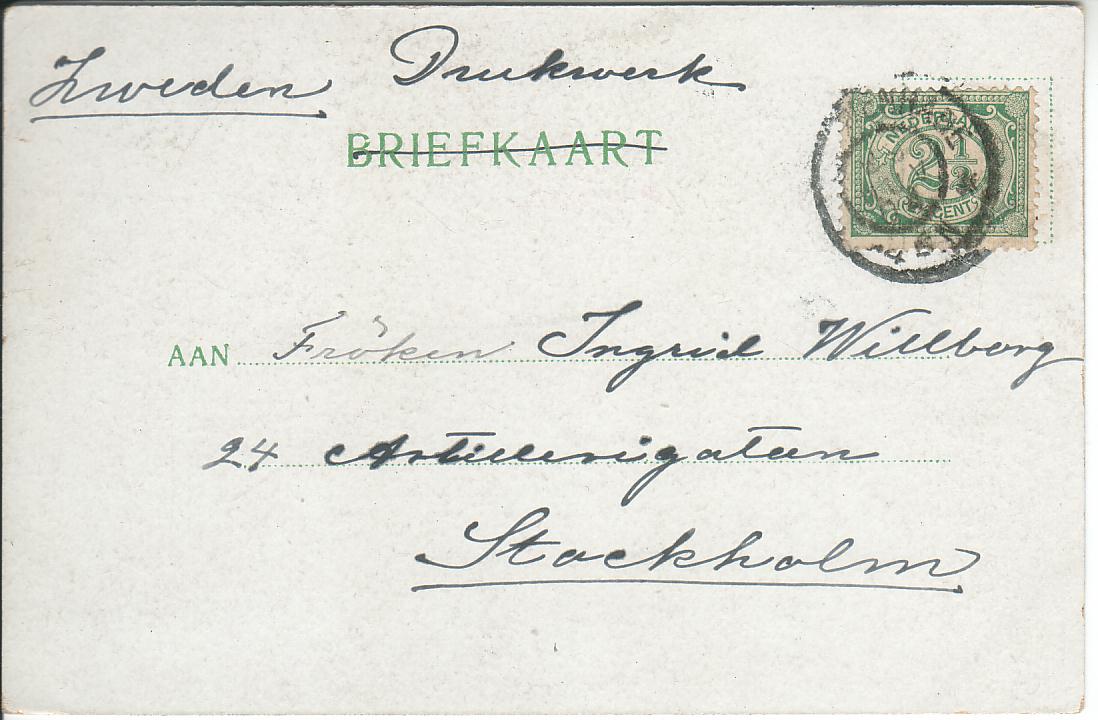 Zweden Drukwerk
BRIEFKAART
NEDERLAND
2 1/2
CENT
AAN Fröken Ingrid Willborg
24 Artillerigatan
Stockholm